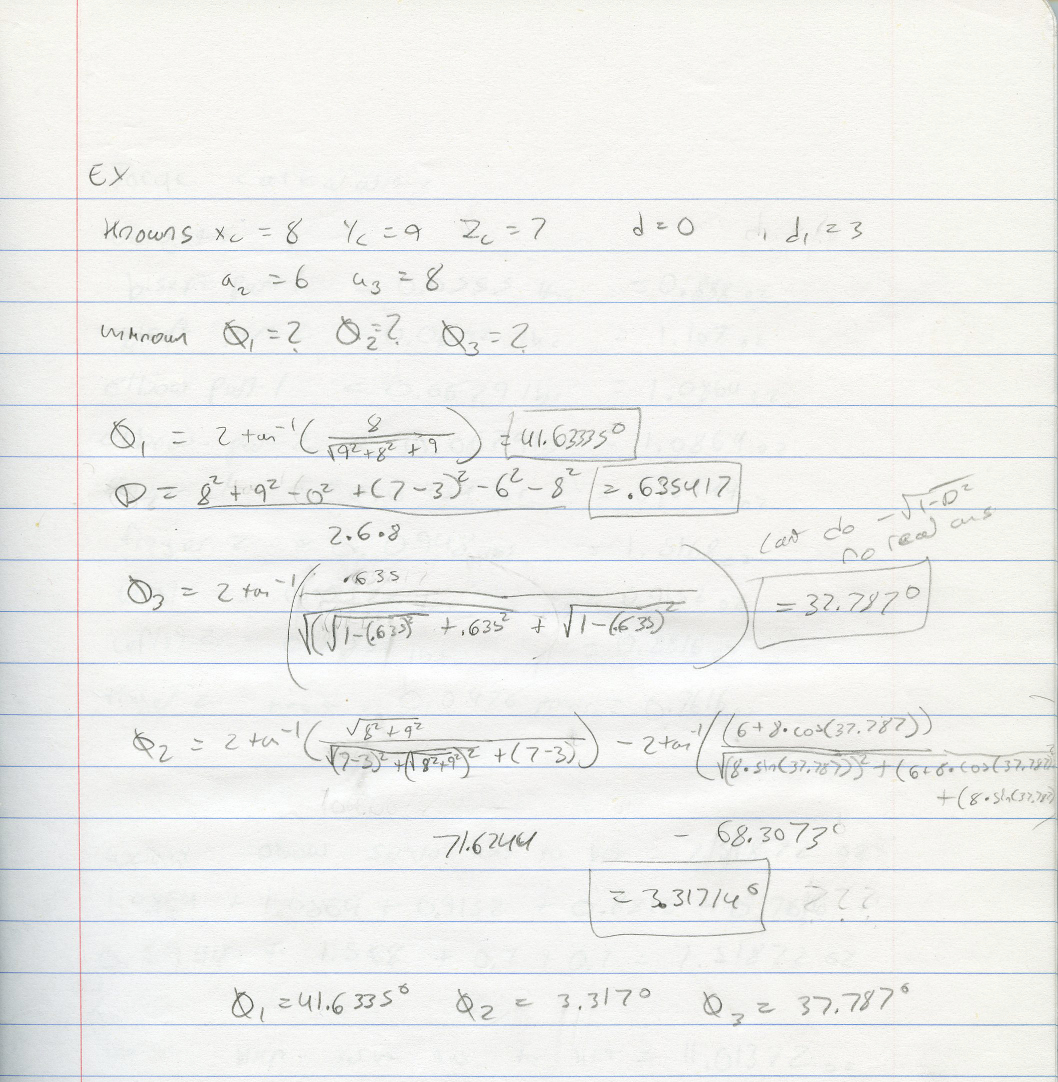 EX
Knowns xc = 8 Yc = 9 Zc = 7 d = 0 , d1 = 3
a2 = 6 a3 = 8
unknown Θ1 = ? Θ2 = ? Θ3 = ?
Θ1 = 2 tan⁻¹( 8 / (√(9² + 8²) + 9) ) = 41.6335°
D = (8² + 9² - 0² + (7-3)² - 6² - 8²) / (2·6·8) = .635417
cant do -√(1-D²)
no real ans
Θ3 = 2 tan⁻¹( .635 / (√((√(1-(.635)²) + .635²) + √(1-(.635)²)) ) = 37.787°
Θ2 = 2 tan⁻¹( √(8²+9²) / (√((7-3)² + (√(8²+9²))²) + (7-3)) ) - 2 tan⁻¹( (6+8·cos(37.787)) / (√(8·sin(37.787))² + (6+8·cos(37.787))²
+ (8·sin(37.787)
71.6244 - 68.3073°
= 3.31714° ? ? ?
Θ1 = 41.6335° Θ2 = 3.317° Θ3 = 37.787°